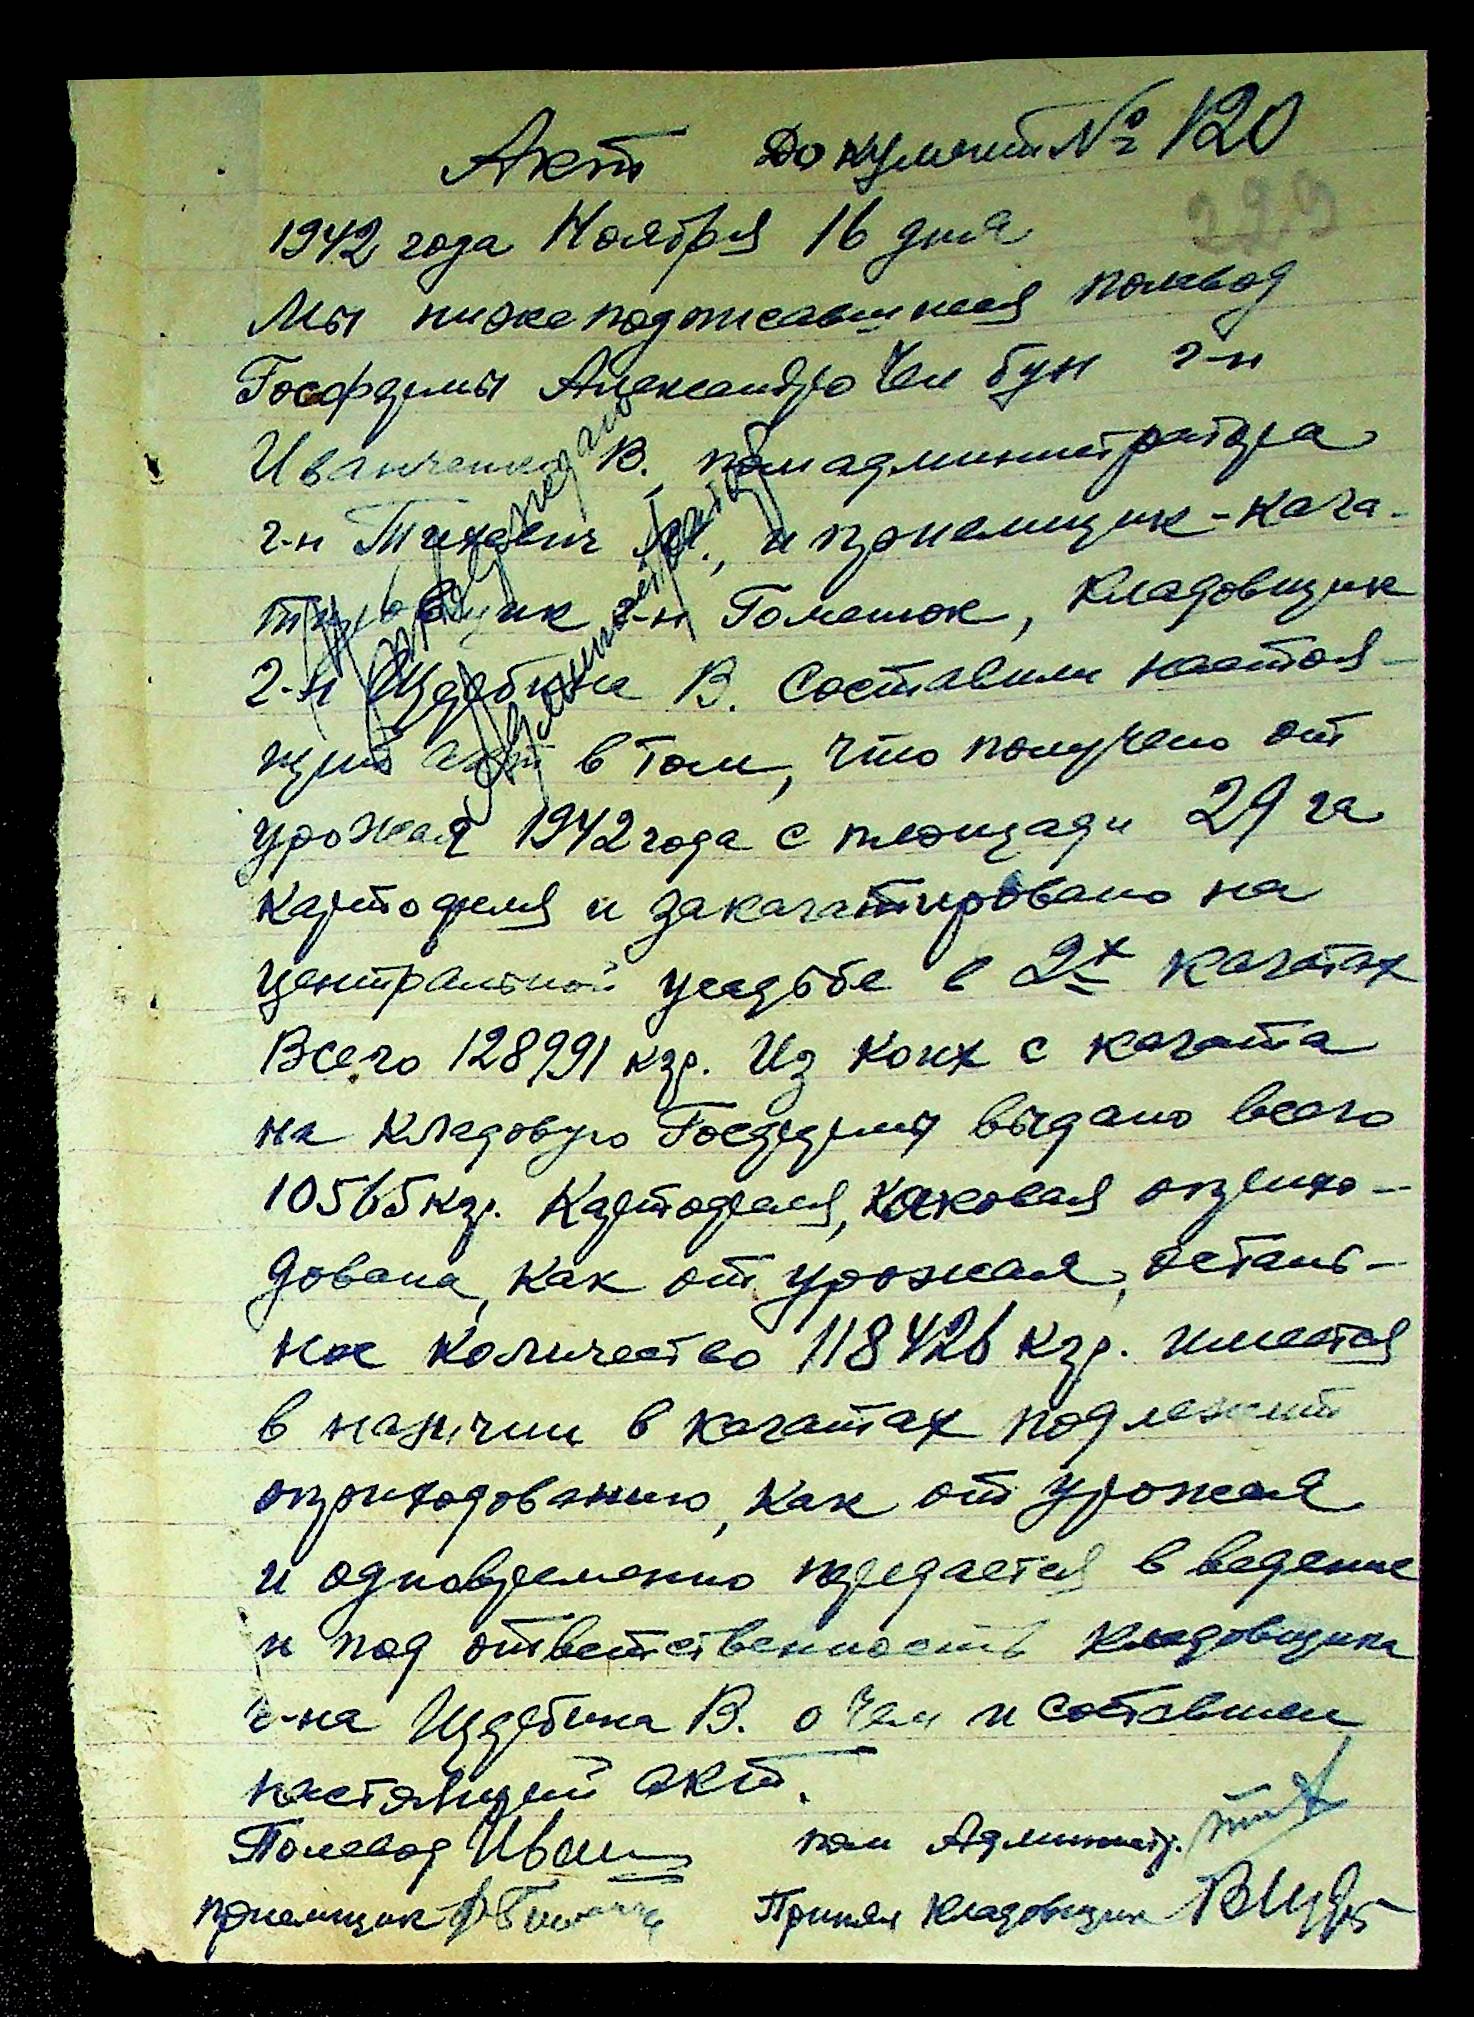 Акт Документ № 120
229
1942 года Ноября 16 дня
Мы нижеподписавшиеся полевод
Госфермы Александро Чен бун г-н
Иванченко В. помадминистратора
г-н Тихевич, и приемщик-кага-
тировщик г-н Гоменюк, кладовщик
г-н Издебина В. Составили настоя-
щий акт в том, что получено от
урожая 1942 года с площади 29 га
картофеля и закагатировано на
центральной усадьбе в 2х кагатах
Всего 128991 кгр. Из коих с кагата
на кладовую Госфермы выдано всего
10565 кгр. Картофеля, каковая оприхо-
дована, как от урожая, осталь-
ное количество 118426 кгр. имеется
в наличии в кагатах подлежит
оприходованию, как от урожая
и одновременно передается в ведение
и под ответственность кладовщика
г-на Издебина В. о чем и составлен
настоящий акт.
Полевод Иван
пом Администр.
приемщик
Принял кладовщик В Изд